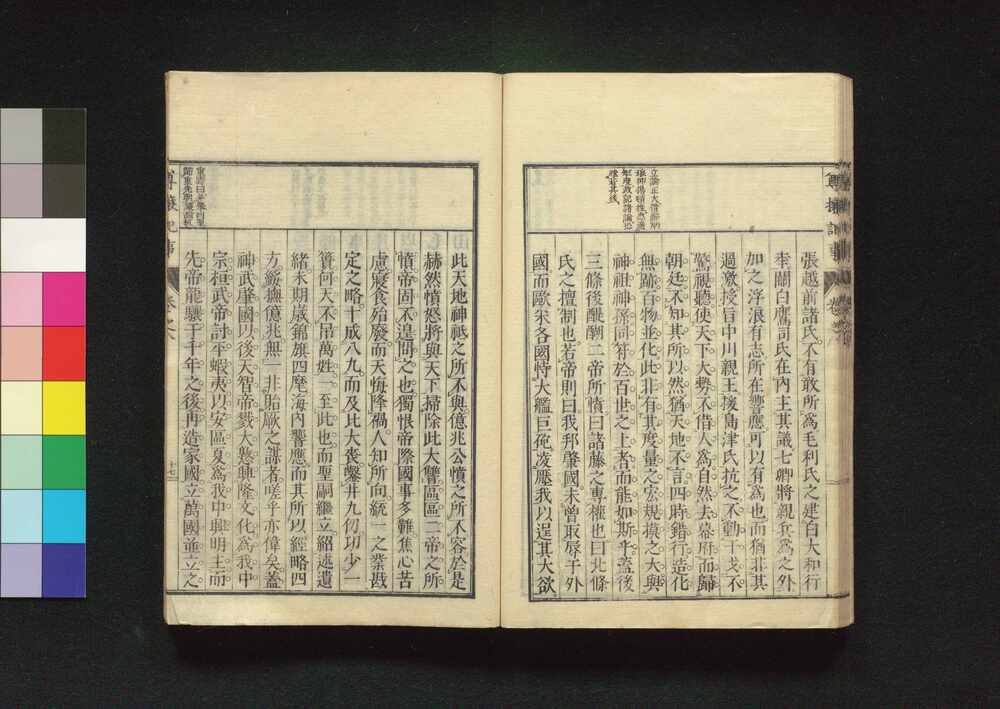 張越前諸氏不有敢所爲毛利氏之建白大和行
幸關白鷹司氏在內主其議七卿將親兵爲之外
加之浮浪有志所在響應可以有爲也而猶非其
過激授旨中川親王援島津氏抗之不動干戈不
驚視聽使天下大勢不借人爲自然去幕府而歸
朝廷不知其所以然猶天地不言四時錯行造化
無跡百物並化此非有其度量之宏規摸之大與
神祖神孫同符於百世之上者而能如斯乎蓋後
三條後醍醐二帝所憤曰諸藤之專權也曰北條
氏之擅制也若帝則曰我邦肇國未曾取辱于外
國而歐米各國恃大艦巨砲凌壓我以逞其大欲
立論正大情
此天地神祇之所不與億兆公憤之所不容於是
赫然憤怒將與天下掃除此大讐區區二帝之所
憤帝固不遑問之也獨恨帝際國事多難焦心苦
慮寢食殆廢而天悔降禍人知所向統一之業戡
定之略十成八九而及比大喪鑿井九仞功少一
簣何天不吊萬姓一至此也而聖嗣繼立紹述遺
緖未期歲錦旗四麾海內響應而其所以經略四
方綏撫億兆無一非貽厥之謀者嗟乎亦偉矣蓋
神武肇國以後天智帝戮大憝興隆文化爲我中
宗桓武帝討平蝦夷以安區夏爲我中興明主而
先帝龍驤于千年之後再造家國立萬國並立之
十七